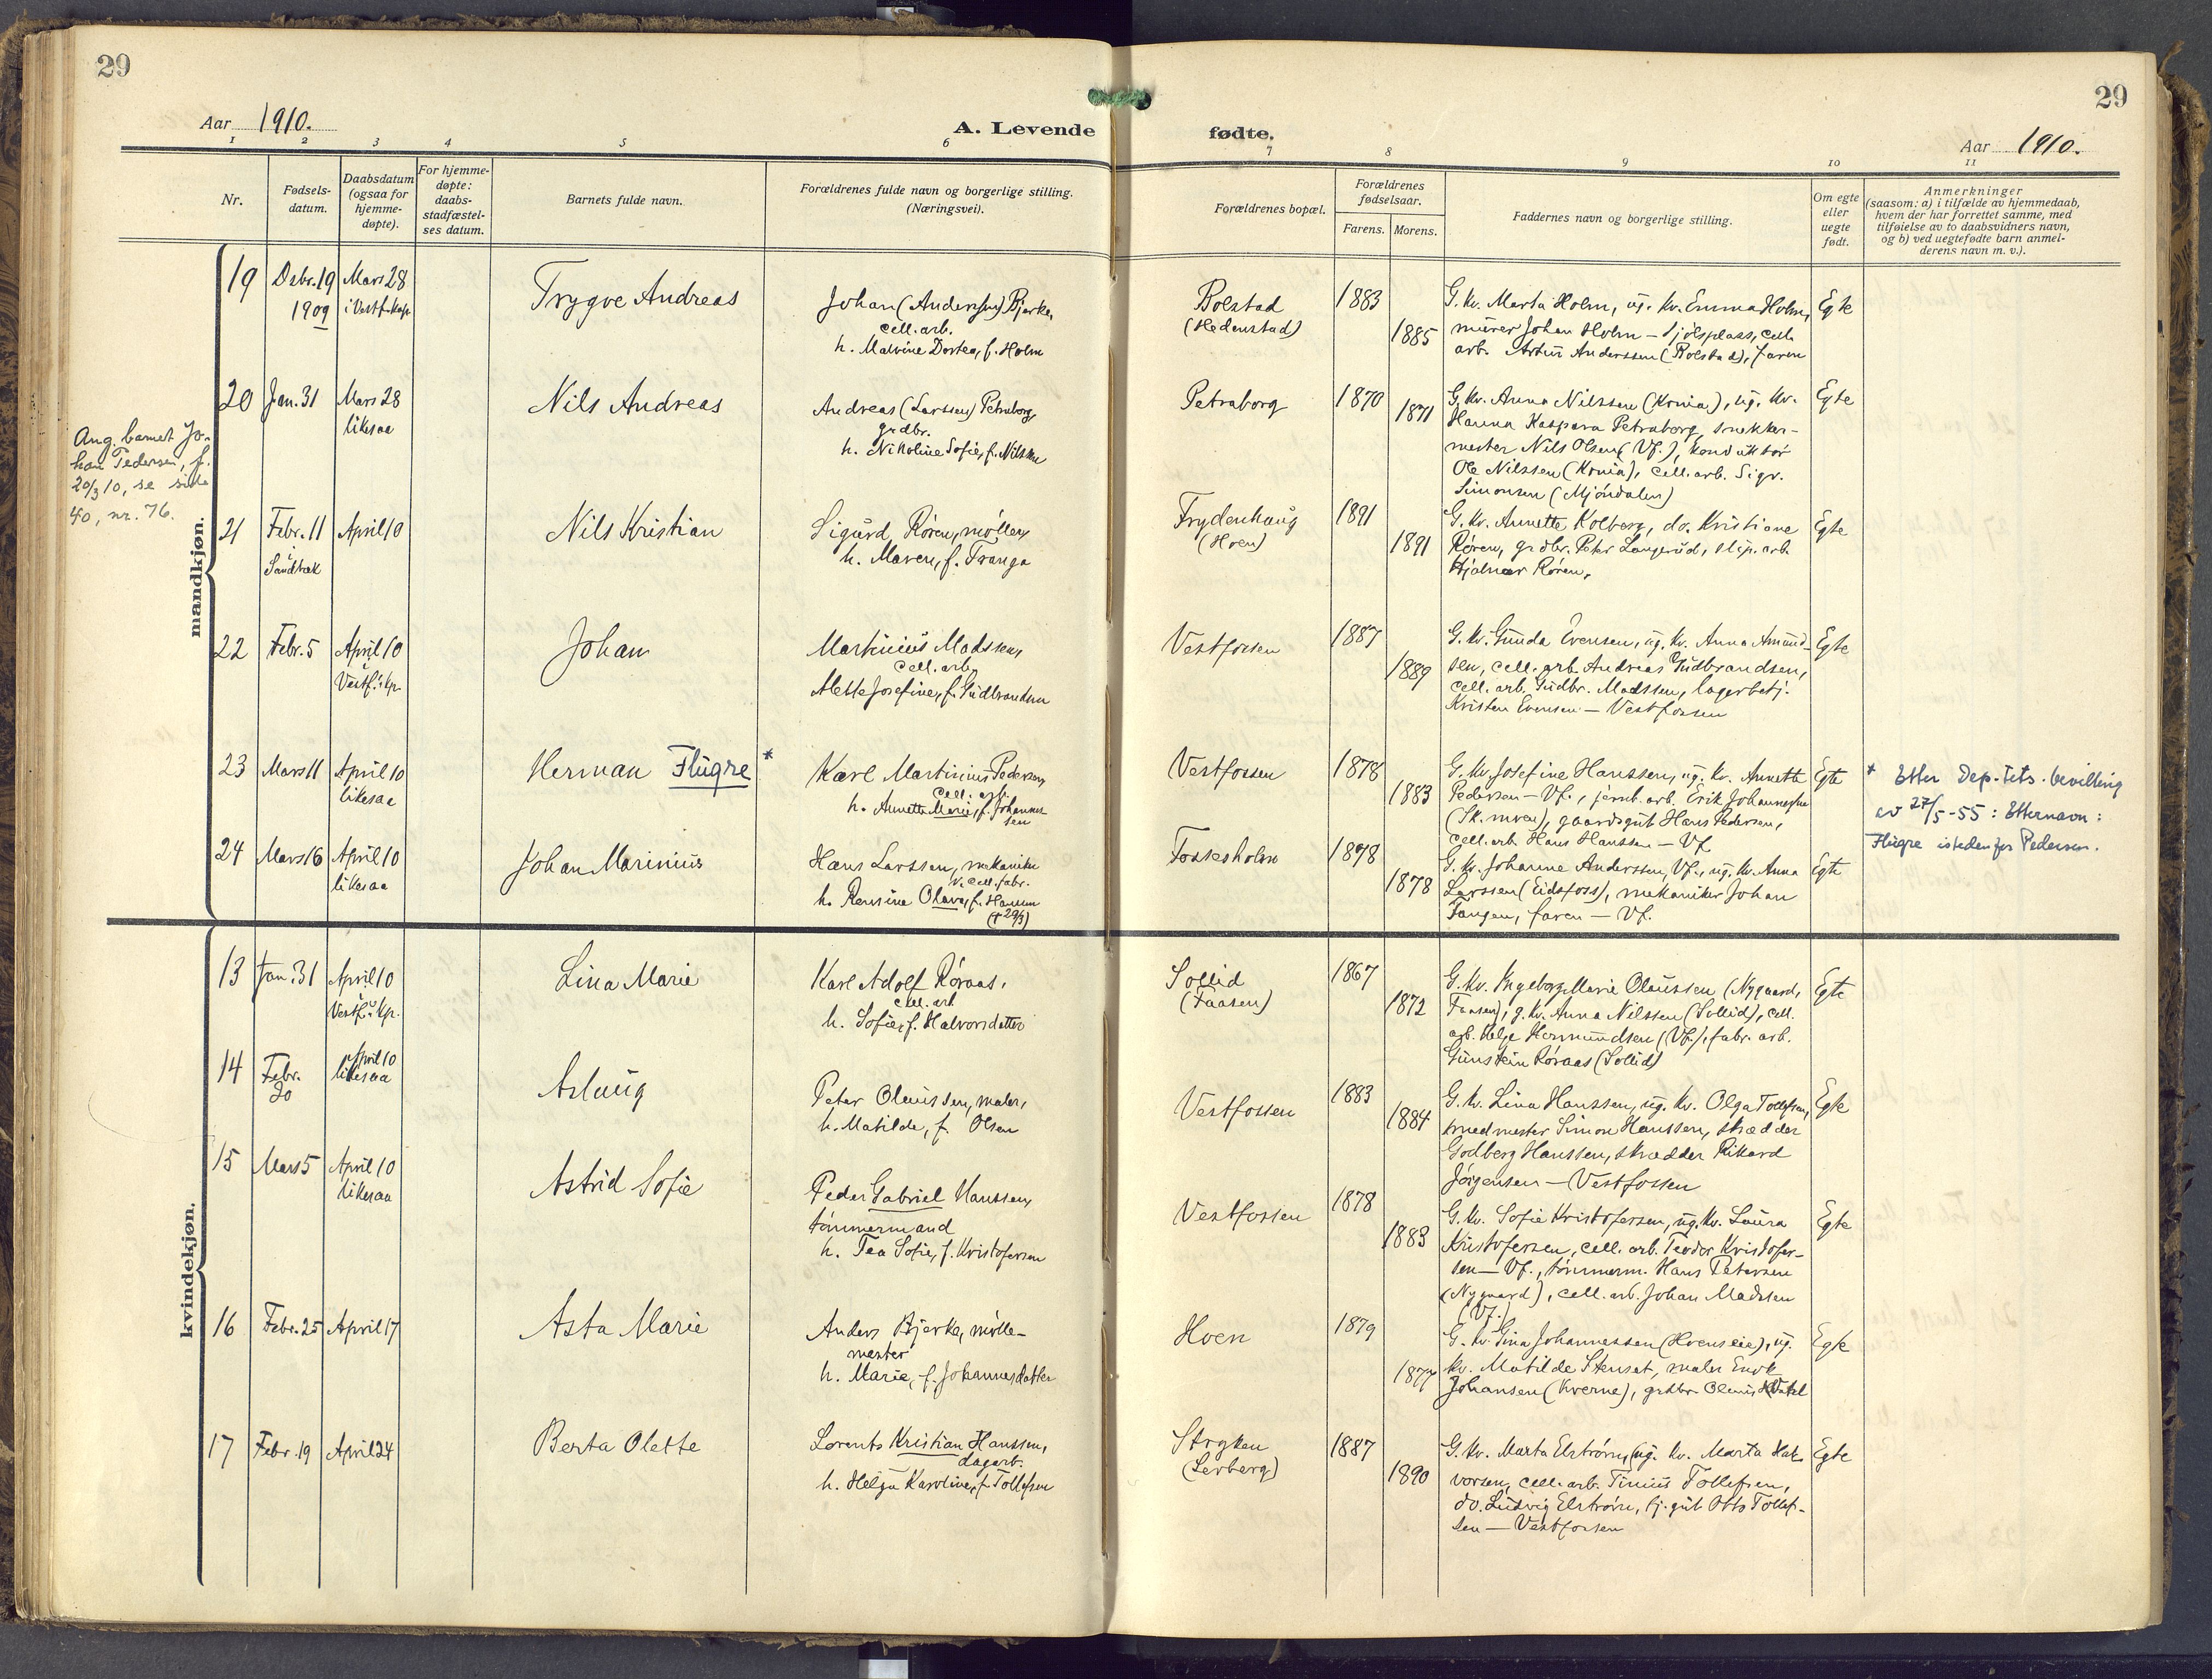 29
29
Aar 1910.
A. Levende
fødte.
Aar 1910.
1 2 3 4 5 6 7 8 9 10 11
Nr.
Fødsels-
datum.
Daabsdatum
(ogsaa for
hjemme-
døpte).
For hjemme-
døpte:
daabs-
stadfæstel-
ses datum.
Barnets fulde navn.
Forældrenes fulde navn og borgerlige stilling.
(Næringsvei).
Forældrenes bopæl.
Forældrenes
fødselsaar.
Farens. Morens.
Faddernes navn og borgerlige stilling.
Om egte
eller
uegte
født.
Anmerkninger
(saasom: a) i tilfælde av hjemmedaab,
hvem der har forrettet samme, med
tilføielse av to daabsvidners navn,
og b) ved uegtefødte barn anmel-
derens navn m. v.).
Ang. barnet Jo-
han Pedersen, f.
20/3 10, se side
40, nr. 76.
mandkjøn.
19
Dsbr. 19
1909
Mars 28
i Vestf. kap
Trygve Andreas
Johan (Anderssen) Bjerke,
cell. arb.
h. Malvine Dortea, f. Holm
Bolstad
(Hedenstad)
1883
1885
G. kv. Marta Holm, ug. kv. Emma Holm,
murer Johan Holm – cell.
arb. Artur Anderssen (Bolstad), faren
Egte
20
Jan. 31
Mars 28
likesaa
Nils Andreas
Andreas (Larssen) Petraborg,
grdbr.
h. Nikoline Sofie, f. Nilssen
Petraborg
1870
1871
G. kv. Anna Nilssen (Krnia), ug. kv.
Hanna Kaspara Petraborg, snekker-
mester Nils Olsen (Vf.), konduktør
Ole Nilssen (Krnia), cell. arb. Sigv.
Simonsen (Mjøndalen)
Egte
21
Febr. 11
i
Sandbæk
April 10
Nils Kristian
Sigurd Røren, møller,
h. Maren, f. Franga
Frydenhaug
(Hoen)
1891
1891
G. kv. Annette Kolberg, do. Kristiane
Røren, grdbr. Peter Langerud, slip. arb.
Hjalmar Røren,
Egte
22
Febr. 5
April 10
i
Vestf. kp.
Johan
Martinius Madssen,
cell. arb.
Mette Josefine, f. Gudbrandsen
Vestfossen
1887
1889
G. kv. Gunda Evensen, ug. kv. Anna Amund-
sen, cell. arb. Andreas Gudbrandsen,
cell. arb. Gudbr. Madssen, lagerbetj.
Kristen Evensen – Vestfossen
Egte
23
Mars 11
April 10
likesaa
Herman Flugre *
Karl Martinius Pedersen,
cell. arb.
h. Annette Marie, f. Johannes-
sen
Vestfossen
1878
1883
G. kv. Josefine Hanssen, ug. kv. Annette
Pedersen – Vf., jernb. arb. Erik Johannessen
(Sk. moen), gaardsgut Hans Pedersen,
cell. arb. Hans Hanssen – Vf
Egte
* Etter Dep-tets. bevilling
av 27/5-55: Etternavn:
Flugre istedenfor Pedersen.
24
Mars 16
April 10
likesaa
Johan Marinius
Hans Larssen, mekaniker
v. cell. fabr.
h. Rensine Olava, f. Hansen
(† 29/3)
Fossesholm
1878
1878
G. kv. Johanne Anderssen, Vf., ug. kv. Anna
Larssen (Eidsfoss), mekaniker Johan
Tangen, faren – Vf.
Egte
kvindekjøn.
13
Jan. 31
April 10
i
Vestf. kp.
Lina Marie
Karl Adolf Røraas,
cell. arb
h. Sofie, f. Halvorsdatter
Sollid
(Faasen)
1867
1872
G. kv. Ingeborg Marie Olaussen (Nygaard,
Faasen), g. kv. Anna Nilssen (Sollid), cell.
arb. Helge Hermundsen (Vf.), fabr. arb.
Gunstein Røraas (Sollid)
Egte
14
Febr.
20
April 10
likesaa
Aslaug
Peter Olaussen, maler,
h. Matilde, f. Olsen
Vestfossen
1883
1884
G. kv. Lina Hanssen, ug. kv. Olga Tollefsen,
smedmester Simon Hanssen, skrædder
Godberg Hanssen, skrædder Rikard
Jørgensen – Vestfossen
Egte
15
Mars 5
April 10
likesaa
Astrid Sofie
Peder Gabriel Hanssen,
tømmermand
h. Tea Sofie, f. Kristofersen
Vestfossen
1878
1883
G. kv. Sofie Kristofersen, ug. kv. Laura
Kristofersen, cell. arb. Teodor Kristofer-
sen – Vf., tømmerm. Hans Petersen
(Nygaard), cell. arb. Johan Madssen
(Vf.)
Egte
16
Febr. 25
April 17
Asta Marie
Anders Bjerke, mølle-
mester
h. Marie, f. Johannesdatter
Hoen
1879
1877
G. kv. Gina Johannessen (Hoenseie), ug.
kv. Matilde Stenset, maler Enok
Johansen (Kverne), grdbr. Olaus
Egte
17
Febr. 19
April 24
Berta Olette
Lorents Kristian Hanssen,
dagarb.
h. Helga Karoline, f. Tollefsen
Stryken
(Lerberg)
1887
1890
G. kv. Marta Elstrøm, ug. kv. Marta Hal-
vorsen, cell. arb. Tinius Tollefsen,
do. Ludvig Elstrøm, tj. gut Otto Tollef-
sen – Vestfossen
Egte